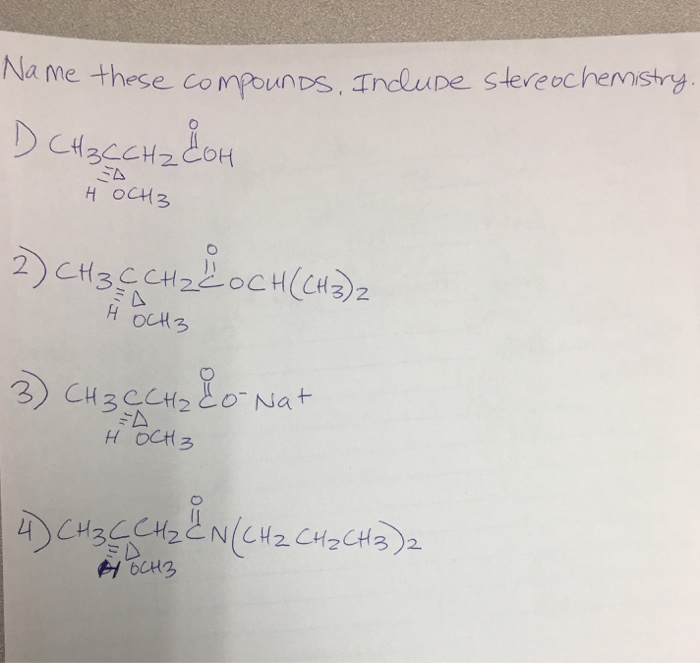 Name these compounds. Include stereochemistry.
O
1) CH3CCH2COH
H OCH3
O
2) CH3CCH2COCH(CH3)2
H OCH3
O
3) CH3CCH2CO-Na+
H OCH3
O
4) CH3CCH2CN(CH2CH2CH3)2
H OCH3